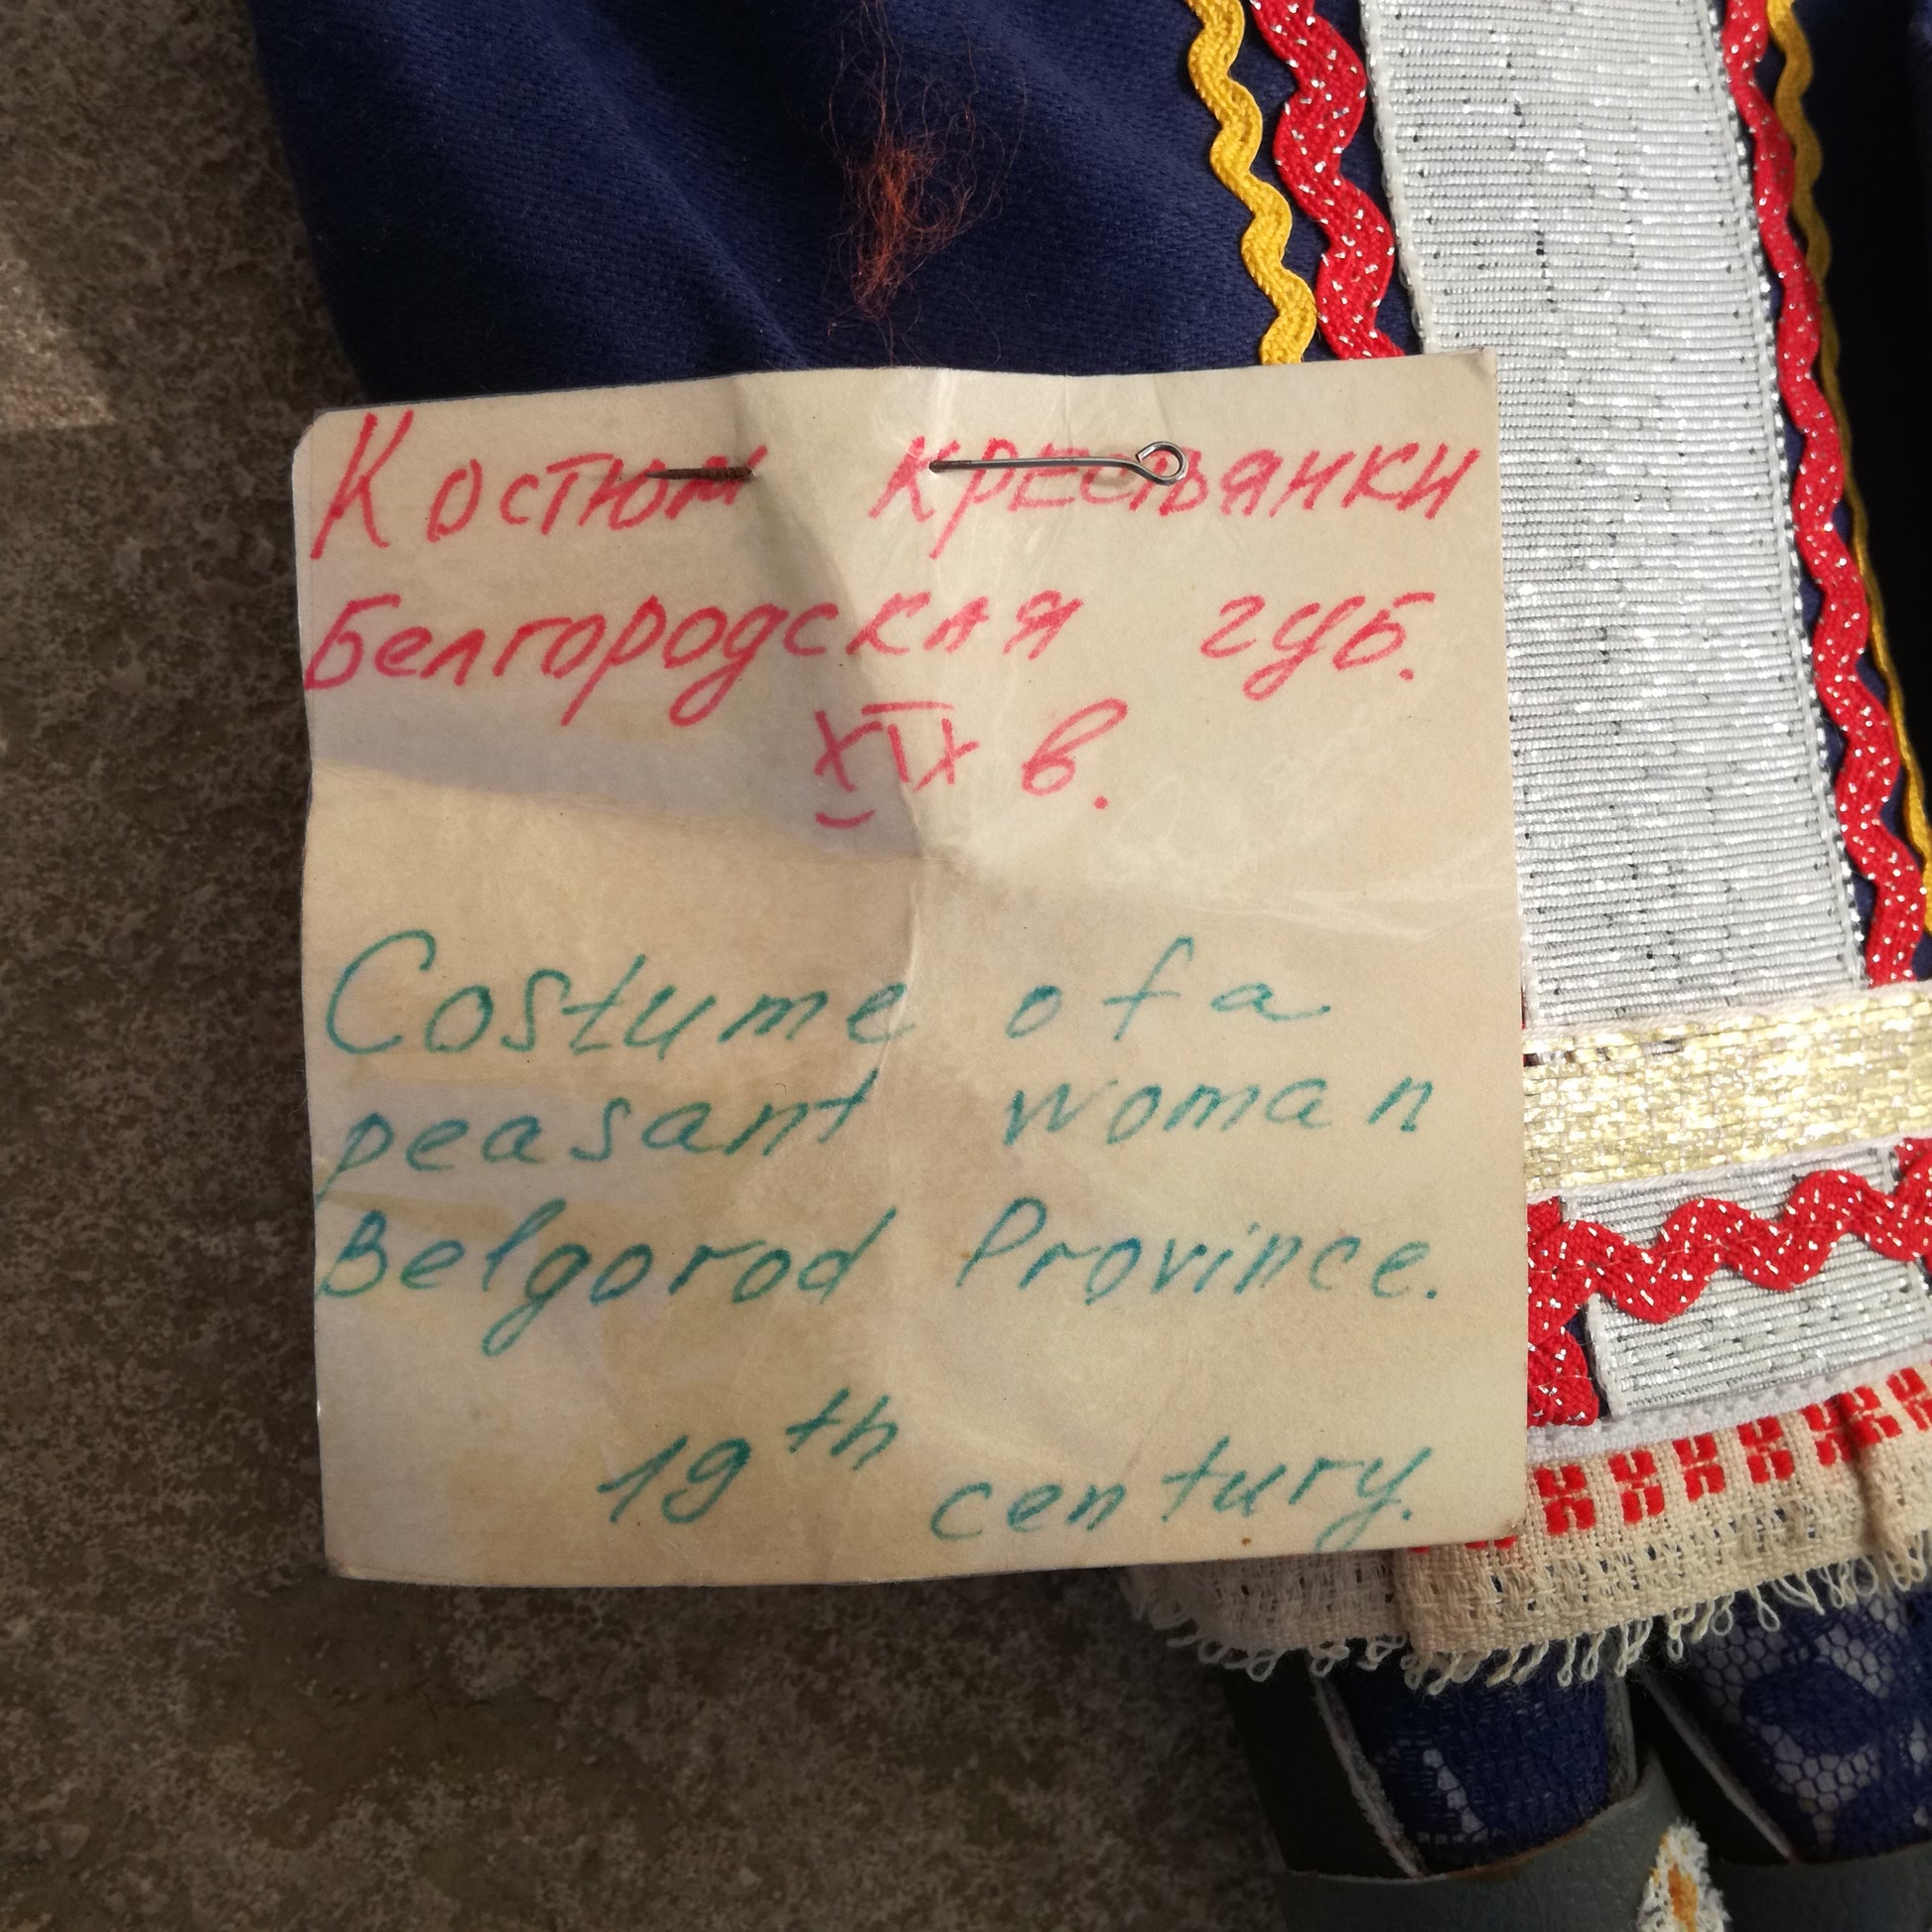 Костюм крестьянки
Белгородская губ.
XIX в.
Costume of a
peasant woman
Belgorod Province.
19th century.